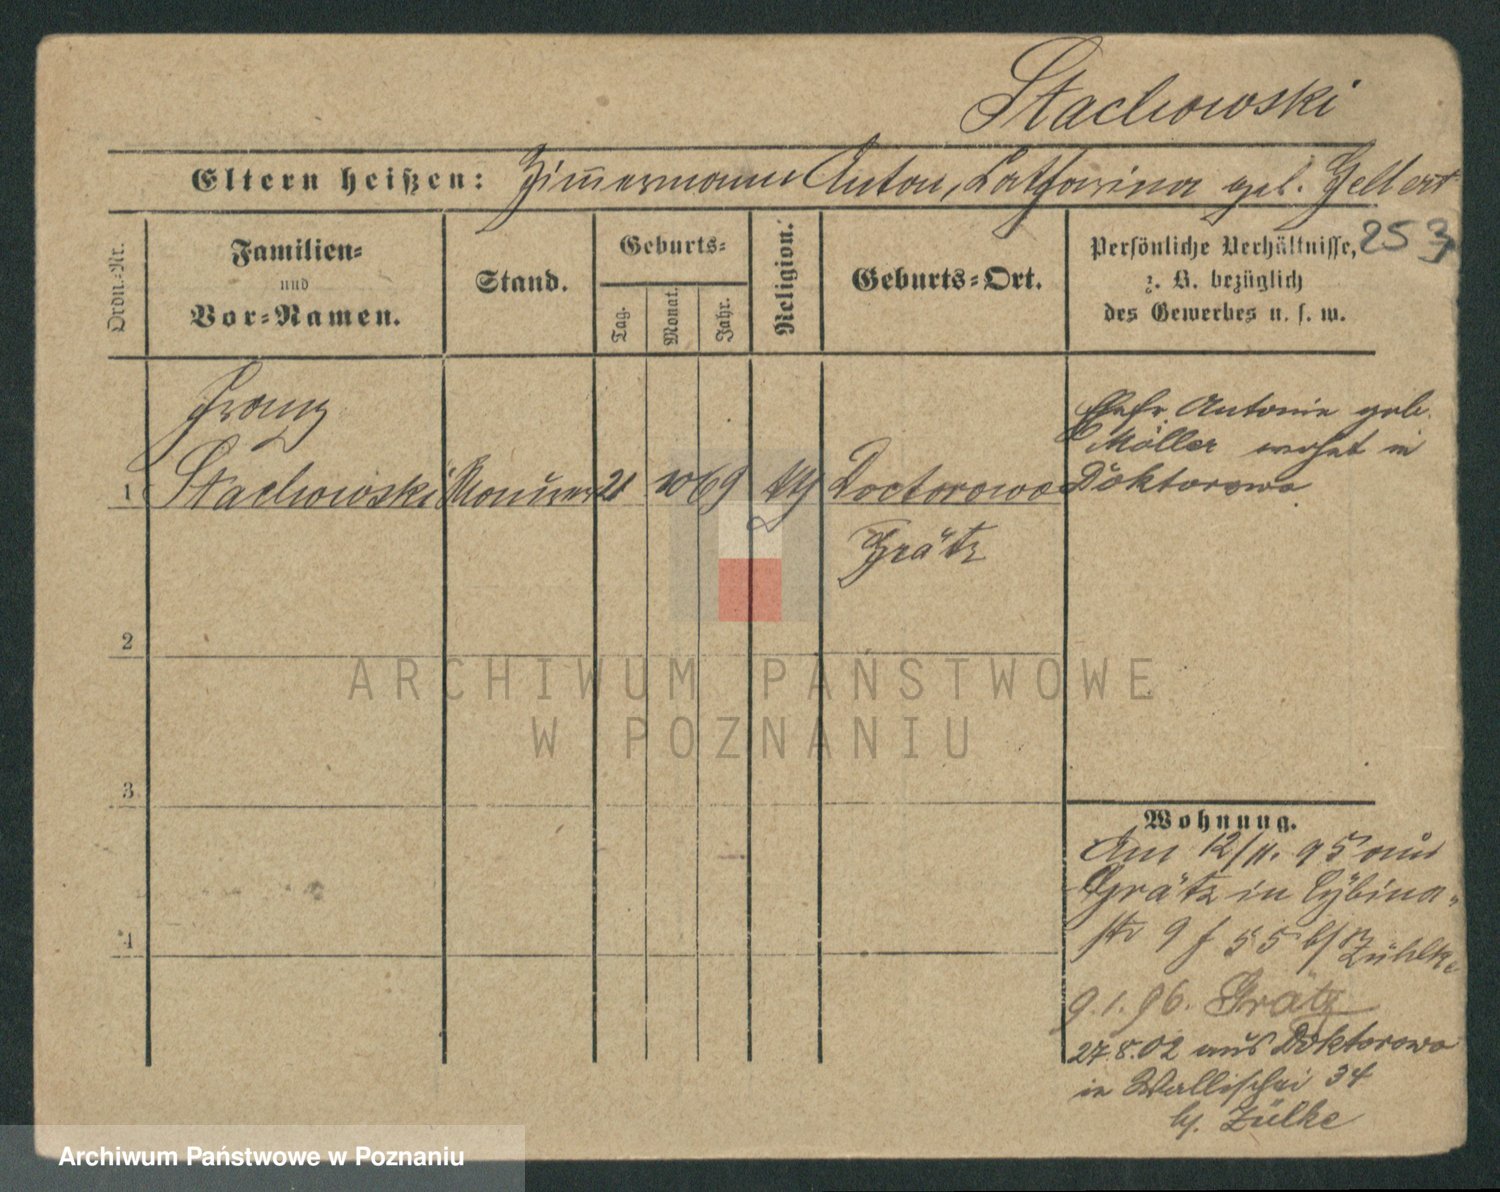 Stachowski
Eltern heißen: Zimmermann Anton, Catharina geb. Gellert
253
Ordn.-Nr.
Familien-
und
Vor-Namen.
Stand.
Geburts-
Tag.
Monat.
Jahr.
Religion.
Geburts-Ort.
Persönliche Verhältnisse,
z. B. bezüglich
des Gewerbes u. s. w.
Franz
1 Stachowski Maurer 21 10 69 Doctorowo
Grätz
Ehefr. Antonie geb.
Möller wohnt in
Doktorowo
2
3
4
Wohnung.
Am 12/11. 95 aus
Grätz in Cybina-
str 9 f 55 b/ Zühlke
9.1.96. Grätz
27.8.02 aus Doktorowo
in Wallischei 34
bj. Zülke
ARCHIWUM PAŃSTWOWE
W POZNANIU
Archiwum Państwowe w Poznaniu